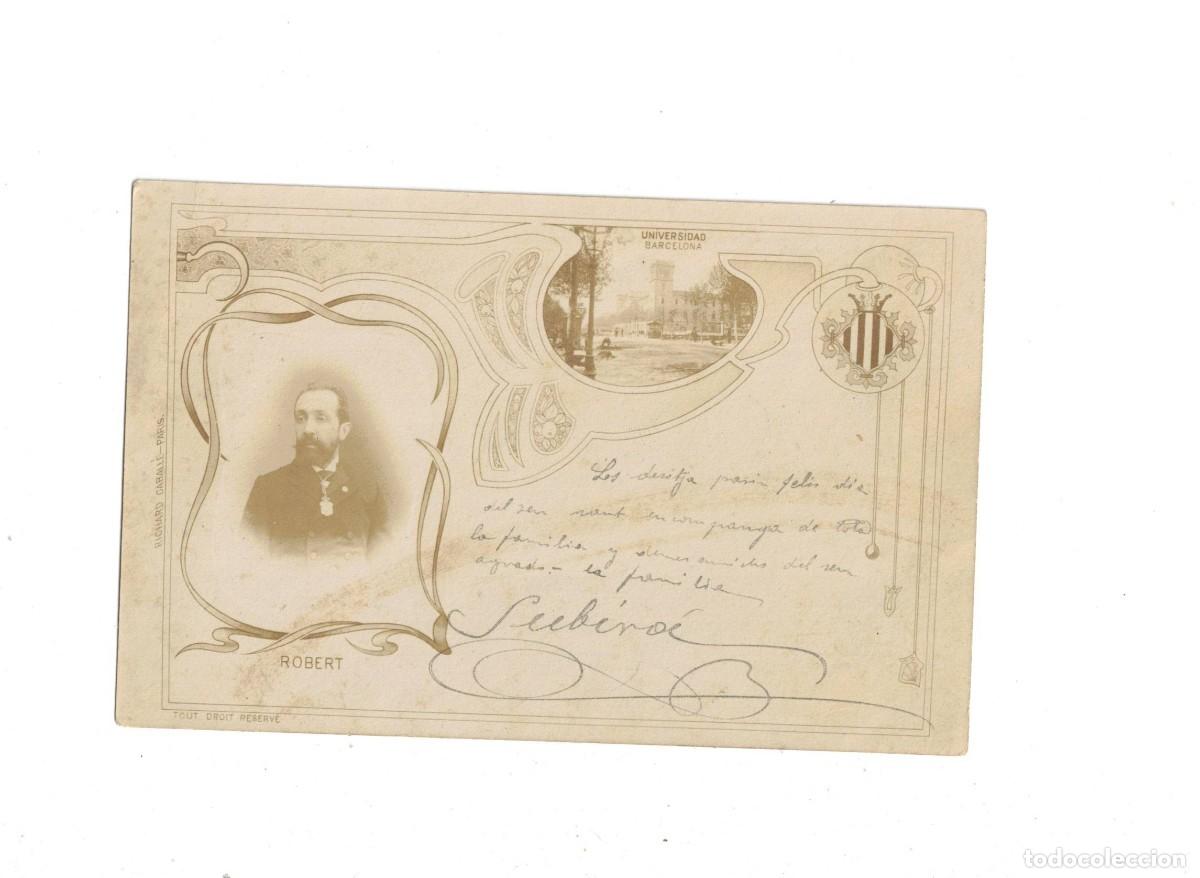 UNIVERSIDAD
BARCELONA
RICHARD CABALLÉ-PARIS.
Les desitja pasin felis dia
del seu sant en companya de tota
la familia y demes amichs del seu
agrado.- la familia
Subirá
ROBERT
TOUT DROIT RESERVÉ
todocoleccion